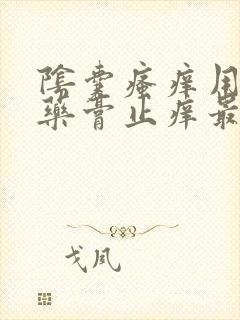 陰囊瘙痒用
藥膏止痒最
戈凤